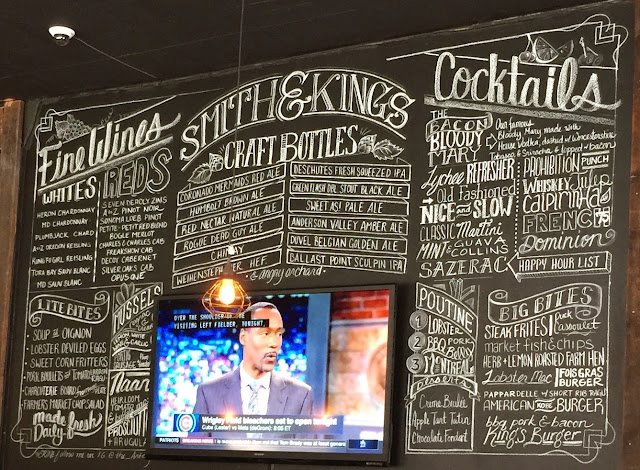 Fine Wines
WHITES
HERON CHARDONNAY
MD CHARDONNAY
PLUMPJACK CHARD
A-Z OREGON REISLING
KUNG FU GIRL REISLING
TORA BAY SAUV BLANC
MD SAUV BLANC
REDS
SEVEN DEADLY ZINS
A to Z PINOT NOIR
SONOMA LOEB PINOT
PETITE-PETIT RED BLEND
BOGLE MERLOT
CHARLES & CHARLES CAB
FREAKSHOW CAB
DECOY CABERNET
SILVER OAKS CAB
OPUS ONE
SMITH & KINGS
CRAFT BOTTLES
CORONADO MERMAIDS RED ALE
HUMBOLT BROWN ALE
RED NECTAR NATURAL ALE
ROGUE DEAD GUY ALE
CHIMAY
WEIHENSTEPHANER HEF.
DESCHUTES FRESH SQUEEZED IPA
GREEN FLASH DBL STOUT BLACK ALE
SWEET ASI PALE ALE
ANDERSON VALLEY AMBER ALE
DUVEL BELGIAN GOLDEN ALE
BALLAST POINT SCULPIN IPA
+ angry orchard
Cocktails
THE BACON BLOODY MARY
Our famous
Bloody Mary made with
House Vodka, dashed w/ Worcestershire
Tabasco & Sriracha & topped w/ bacon
Lychee REFRESHER
Old Fashioned
NICE and SLOW
CLASSIC Martini
MINT & GUAVA COLLINS
SAZERAC
PROHIBITION PUNCH
WHISKEY Julup
Caipirinha
FRENCH 75
Dominion
HAPPY HOUR LIST
LITE BITES
SOUP OIGNON
LOBSTER DEVILED EGGS
SWEET CORN FRITTERS
PORK
CHARCUTERIE BOARD
FARMERS MARKET CHOP SALAD
Made Fresh Daily
MUSSELS
HEIRLOOM
TOMATO
+ ARUGULA
OVER THE SHOULDER OF THE
VISITING LEFT FIELDER, TONIGHT,
Wrigley Field bleachers set to open tonight
Cubs (Lester) vs Mets (deGrom): 8:05 ET
PATRIOTS
BREAKING NEWS
POUTINE
1 LOBSTER
2 BBQ PORK BELLY
3 MONTREAL
desserts
Creme Brulee
Apple Tart Tatin
Chocolate Fondant
BIG BITES
STEAK FRITES
Duck Cassoulet
market fish & chips
HERB + LEMON ROASTED FARM HEN
Lobster Mac
FOIS GRAS BURGER
PAPPARDELLE w/ SHORT RIB RAGU
AMERICAN KOBE BURGER
bbq pork & bacon
King's Burger